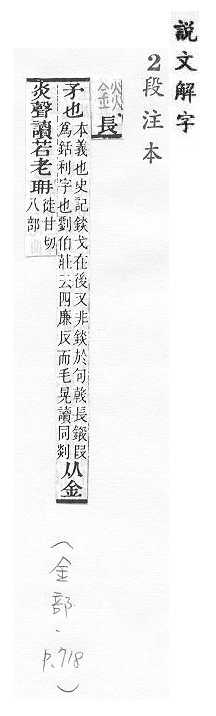 説文解字
2段注本
錟 長
矛也
本義也史記錟戈在後又非錟於句戟長鎩叚
爲銛利字也劉伯莊云四廉反而毛晃讀同剡
从金
炎聲讀若老耼
徒甘切
八部
(金部.p.718)